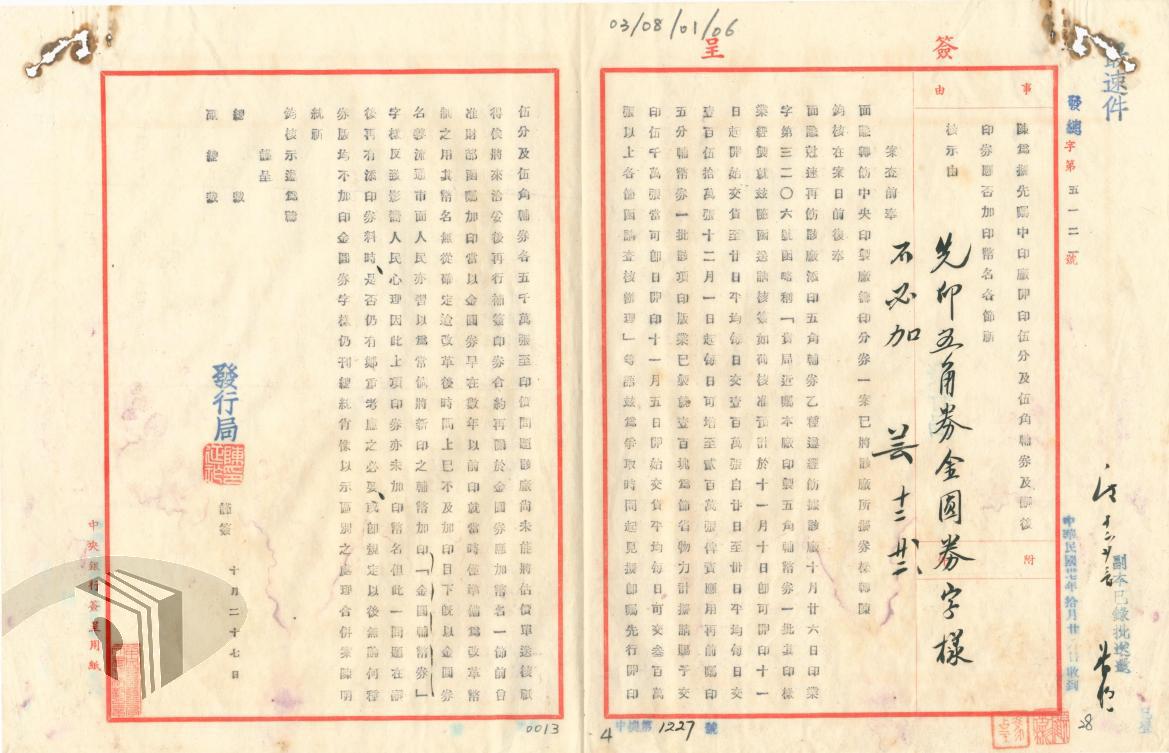 03/08/01/06
簽
呈
最速件
發總字第五一二一號
事由
陳為擬先囑中印廠開印伍分及伍角輔券及鄙後
印券應否加印幣名各節祈
核示由
附
先印五角券金圓券字樣
不必加 芸 十二 廿二
副本已錄批送還
中華民國卅七年拾月廿 日收到
案查前奉
面諭轉飭中央印製廠籌印分券一案已將該廠所擬券樣轉陳
鈞核在案日前復奉
面諭趕速再飭該廠添印五角輔券乙種遵經飭據該廠十月廿六日印業
字第三二〇六號函略稱「貴局近囑本廠印製五角輔幣券一批其印樣
業經製就茲隨函送請核簽如荷核准預計於十一月十日即可開印十一
日起開始交貨至廿日平均每日交壹百萬張自廿日至卅日平均每日交
壹百伍拾萬張十二月一日起每日可增至貳百萬張俾資應用再前囑印
五分輔幣券一批影項印版業已製就壹百塊為節省物力計擬請賜予交
印伍千萬張當可即日開印十一月五日開始交貨平均每日可交叁百萬
張以上各節函請查核辦理」等語茲為爭取時間起見擬即囑先行開印
伍分及伍角輔券各五千萬張至印價問題該廠尚未能將估價單送核擬
得俟將來洽妥後再行補簽印券合約再關於金圓券應加幣名一節前曾
准財部函囑加印當以金圓券早在數年以前印就當時僅準備為改革幣
制之用其幣名無從確定迨改革後時間上已不及加印目下既以金圓券
名義流通市面人民亦習以為常倘將新印之輔幣加印「金圓輔幣券」
字樣反致影響人民心理因此上項印券亦未加印幣名但此一問題在鄙
後再有添印券料時是否仍有鄭重考慮之必要或即規定以後無論何種
券版均不加印金圓券字樣仍刊總統肖像以示區別之處理合併案陳明
統祈
鈞核示遵為禱
謹呈
總裁
副總裁
發行局
謹簽
十月二十七日
中央銀行簽呈用紙
0013
4
中機第1227號
28